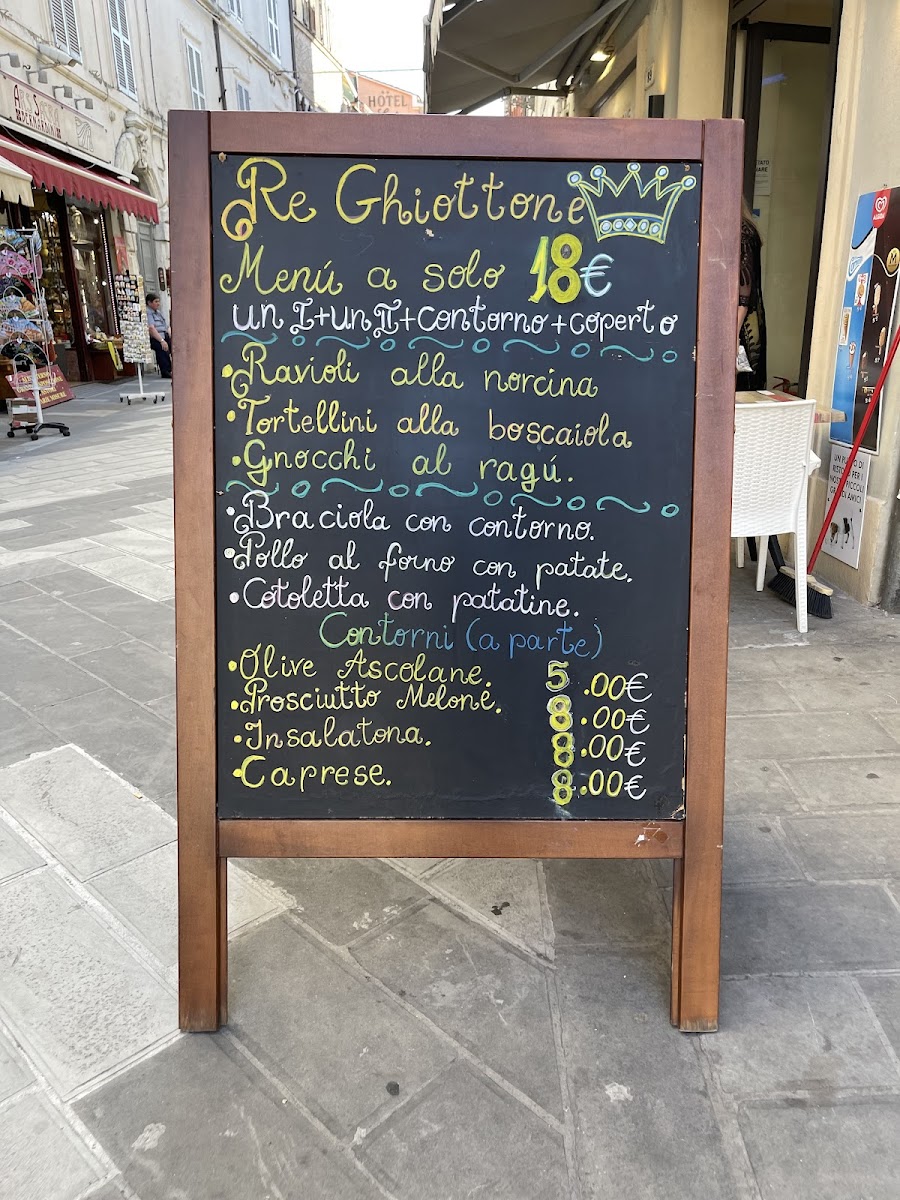 HOTEL
Re Ghiottone
Menú a solo 18€
un I+un II+contorno+coperto
• Ravioli alla norcina
• Tortellini alla boscaiola
• Gnocchi al ragú.
• Braciola con contorno.
• Pollo al forno con patate.
• Cotoletta con patatine.
Contorni (a parte)
• Olive Ascolane. 5.00€
• Prosciutto Melone. 8.00€
• Insalatona. 8.00€
• Caprese. 8.00€
UN PUNTO DI
RISTORO PER I
NOSTRI PICCOLI
GRANDI AMICI